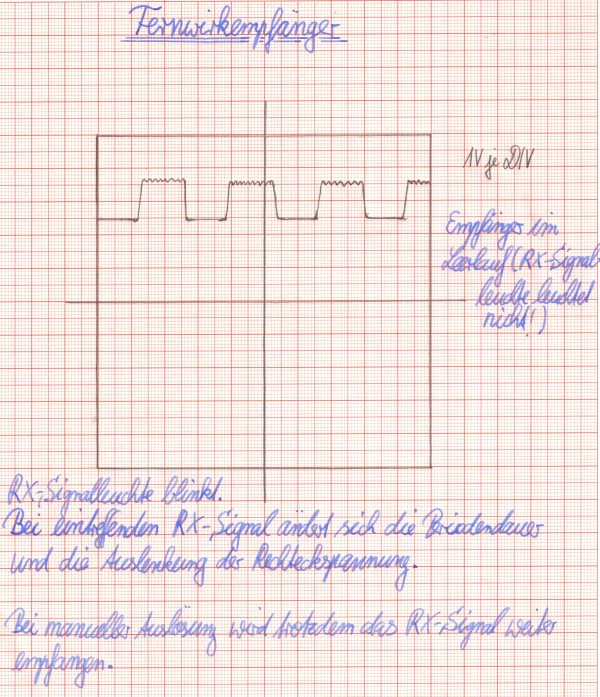 Fernwirkempfänger
1V je DIV
Empfänger im
Leerlauf (RX-Signal-
leuchte leuchtet
nicht!)
RX-Signalleuchte blinkt.
Bei eintreffenden RX-Signal ändert sich die Periodendauer
und die Auslenkung der Rechteckspannung.
Bei manueller Auslösung wird trotzdem das RX-Signal weiter
empfangen.